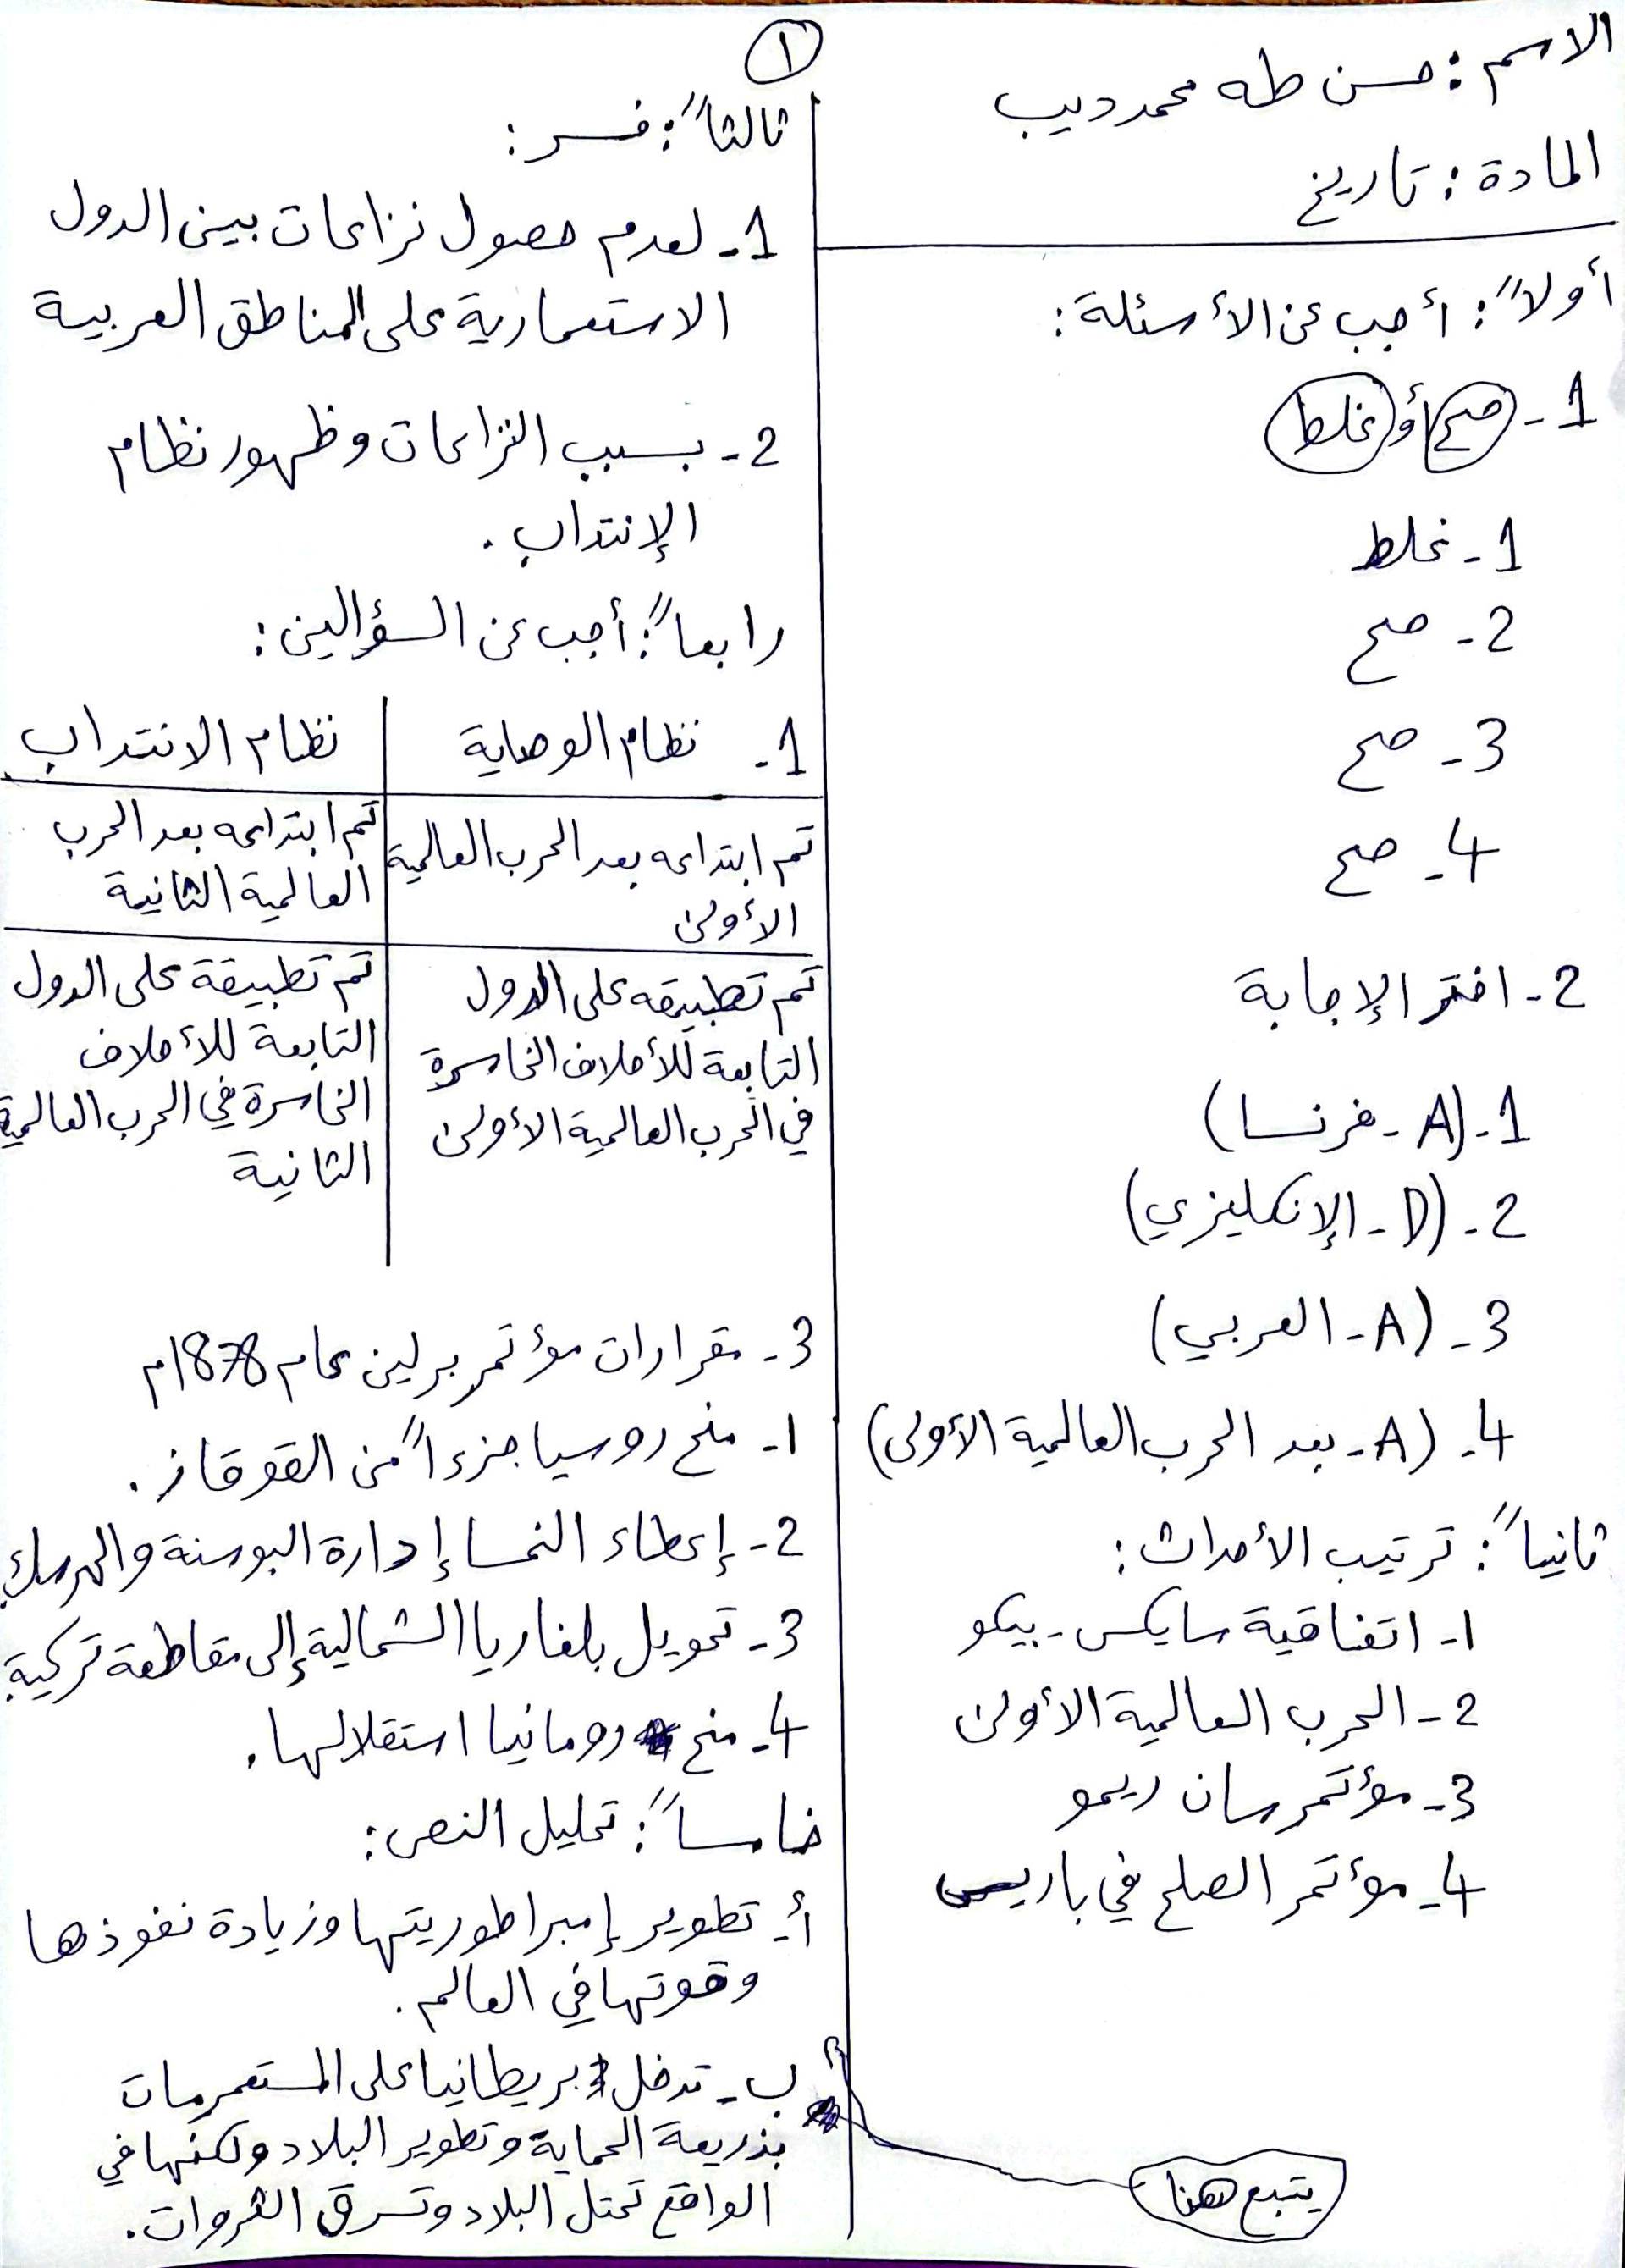 ١
الاسم: حسن طه محمد ديب
المادة: تاريخ
أولاً: أجب عن الأسئلة:
1- صح أو غلط
1- غلط
2- صح
3- صح
4- صح
2- اختر الإجابة
1- (A- فرنسا)
2- (D- الإنكليزي)
3- (A- العربي)
4- (A- بعد الحرب العالمية الأولى)
ثانياً: ترتيب الأحداث:
1- اتفاقية سايكس-بيكو
2- الحرب العالمية الأولى
3- مؤتمر سان ريمو
4- مؤتمر الصلح في باريس
يتبع هنا
ثالثاً: فسر:
1- لعدم حصول نزاعات بين الدول
الاستعمارية على المناطق العربية
2- بسبب النزاعات وظهور نظام
الإنتداب.
رابعاً: أجب عن السؤالين:
1- نظام الوصاية نظام الانتداب
تم ابتداعه بعد الحرب العالمية
الأولى
تم ابتداعه بعد الحرب
العالمية الثانية
تم تطبيقه على الدول
التابعة للأحلاف الخاسرة
في الحرب العالمية الأولى
تم تطبيقة على الدول
التابعة للأحلاف
الخاسرة في الحرب العالمية
الثانية
3- مقرارات مؤتمر برلين عام 1878م
1- منح روسيا جزءاً من القوقاز.
2- إعطاء النمسا إدارة البوسنة والهرسك.
3- تحويل بلغاريا الشمالية إلى مقاطعة تركية.
4- منح رومانيا استقلالها.
خامساً: تحليل النص:
أ- تطوير إمبراطوريتها وزيادة نفوذها
وقوتها في العالم.
ب- تدخل بريطانيا على المستعمرمات
بذريعة الحماية وتطوير البلاد ولكنها في
الواقع تحتل البلاد وتسرق الثروات.